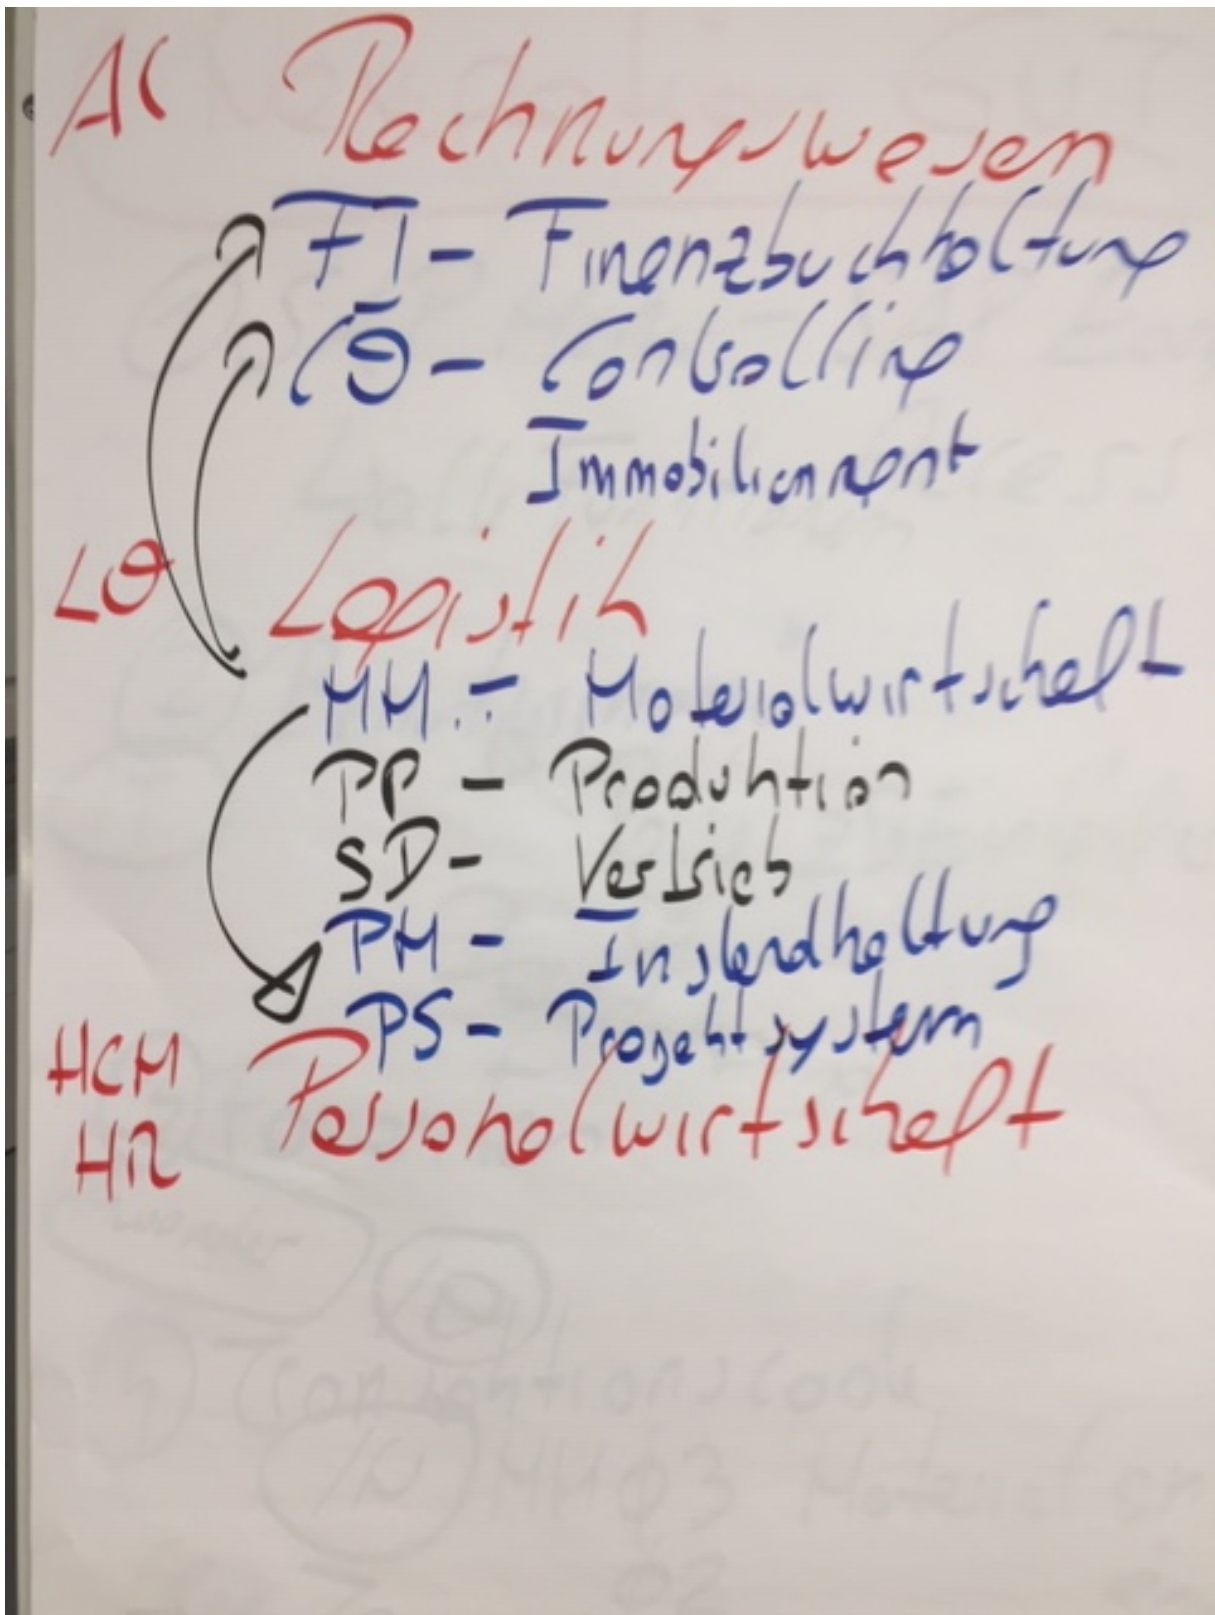 AC Rechnungswesen
FI - Finanzbuchhaltung
CO - Controlling
Immobilienmgnt
LO Logistik
MM - Materialwirtschaft
PP - Produktion
SD - Vertrieb
PM - Instandhaltung
PS - Projektsystem
HCM Personalwirtschaft
HR
Transaktionscode
MM03 Material
02